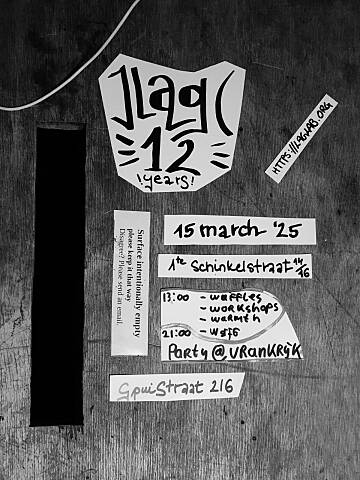 ]Lag(
12
!years!
HTTPS://LAGLAB.ORG
15 march '25
1ste Schinkelstraat 14/16
Surface intentionally empty
please keep it that way
Disagree? Please send an email.
13:00 - waffles
- workshops
- warmth
21:00 -
Party @ VRanKRijk
Spuistraat 216